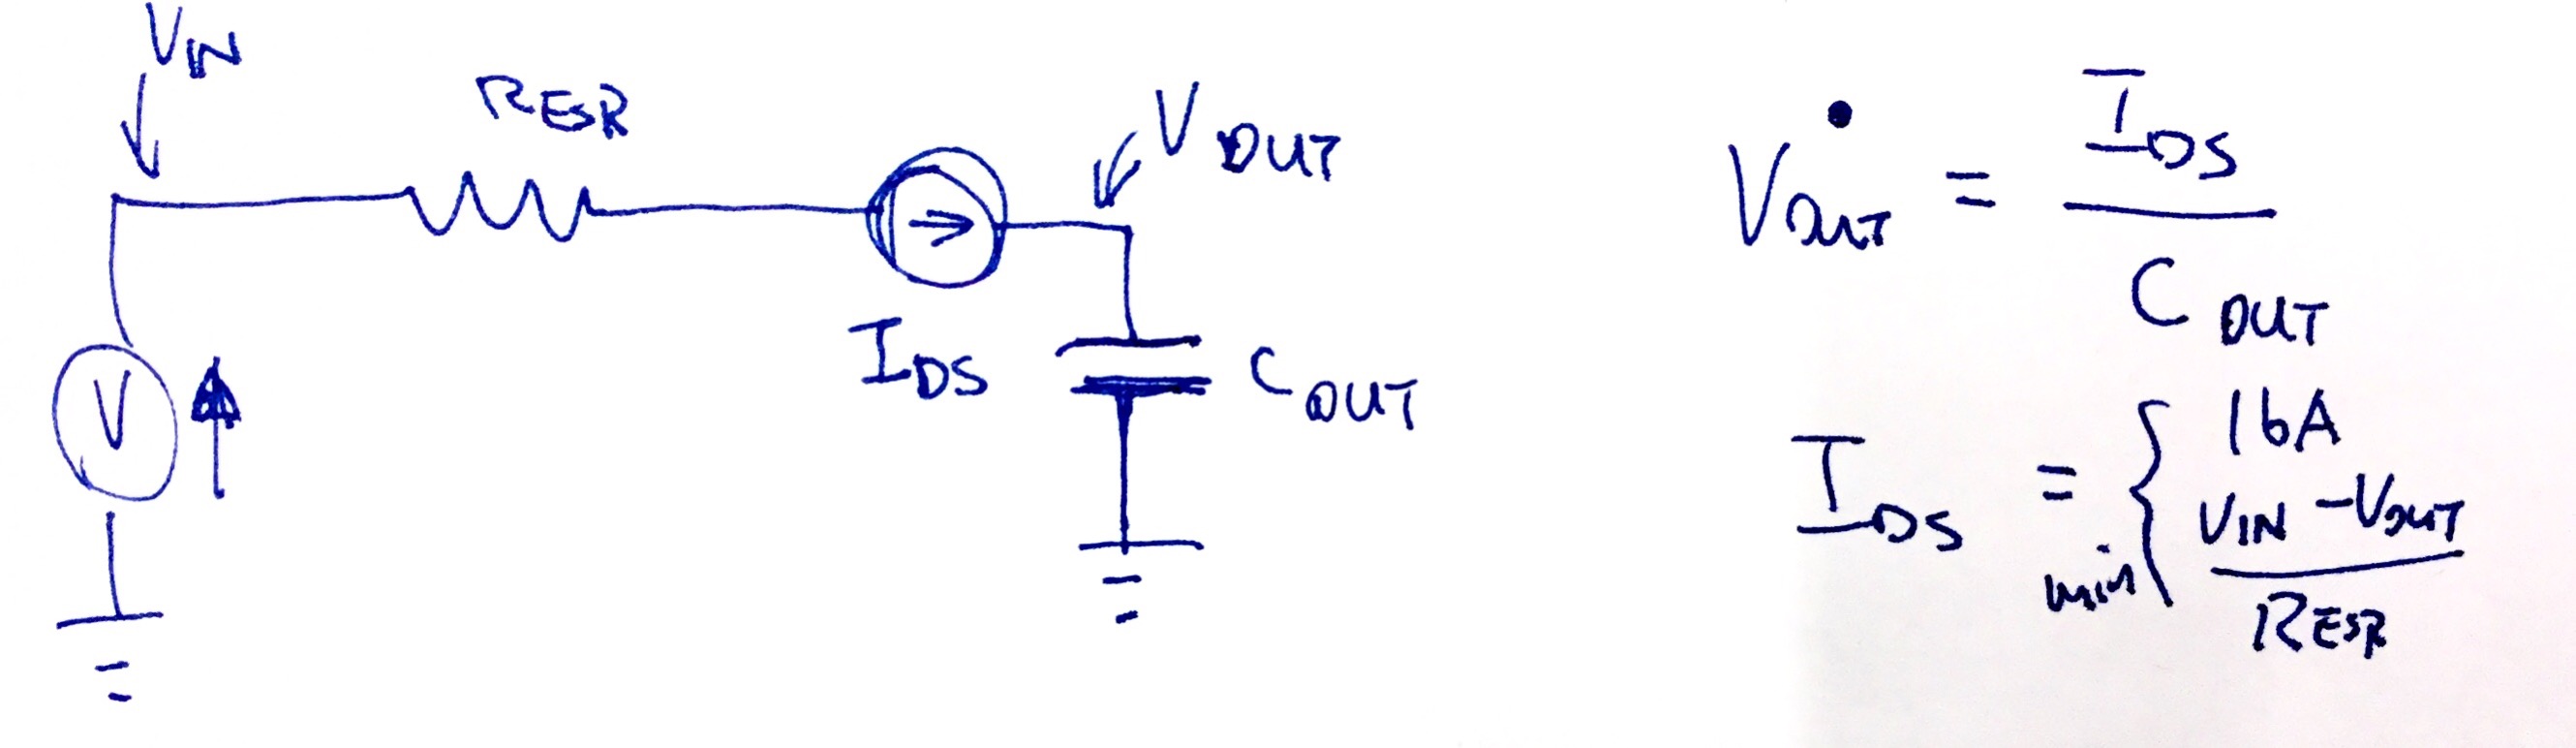 VIN
RESR
VOUT
V
IDS
COUT
V̇OUT = IDS / COUT
IDS = min { 16A
VIN - VOUT / RESR